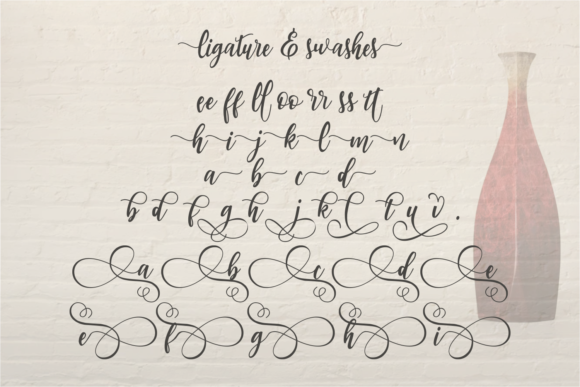 ligature & swashes
ee ff ll oo rr ss tt
h i j k l m n
a b c d
b d f g h j k l t y v .
a b c d e
e f g h i